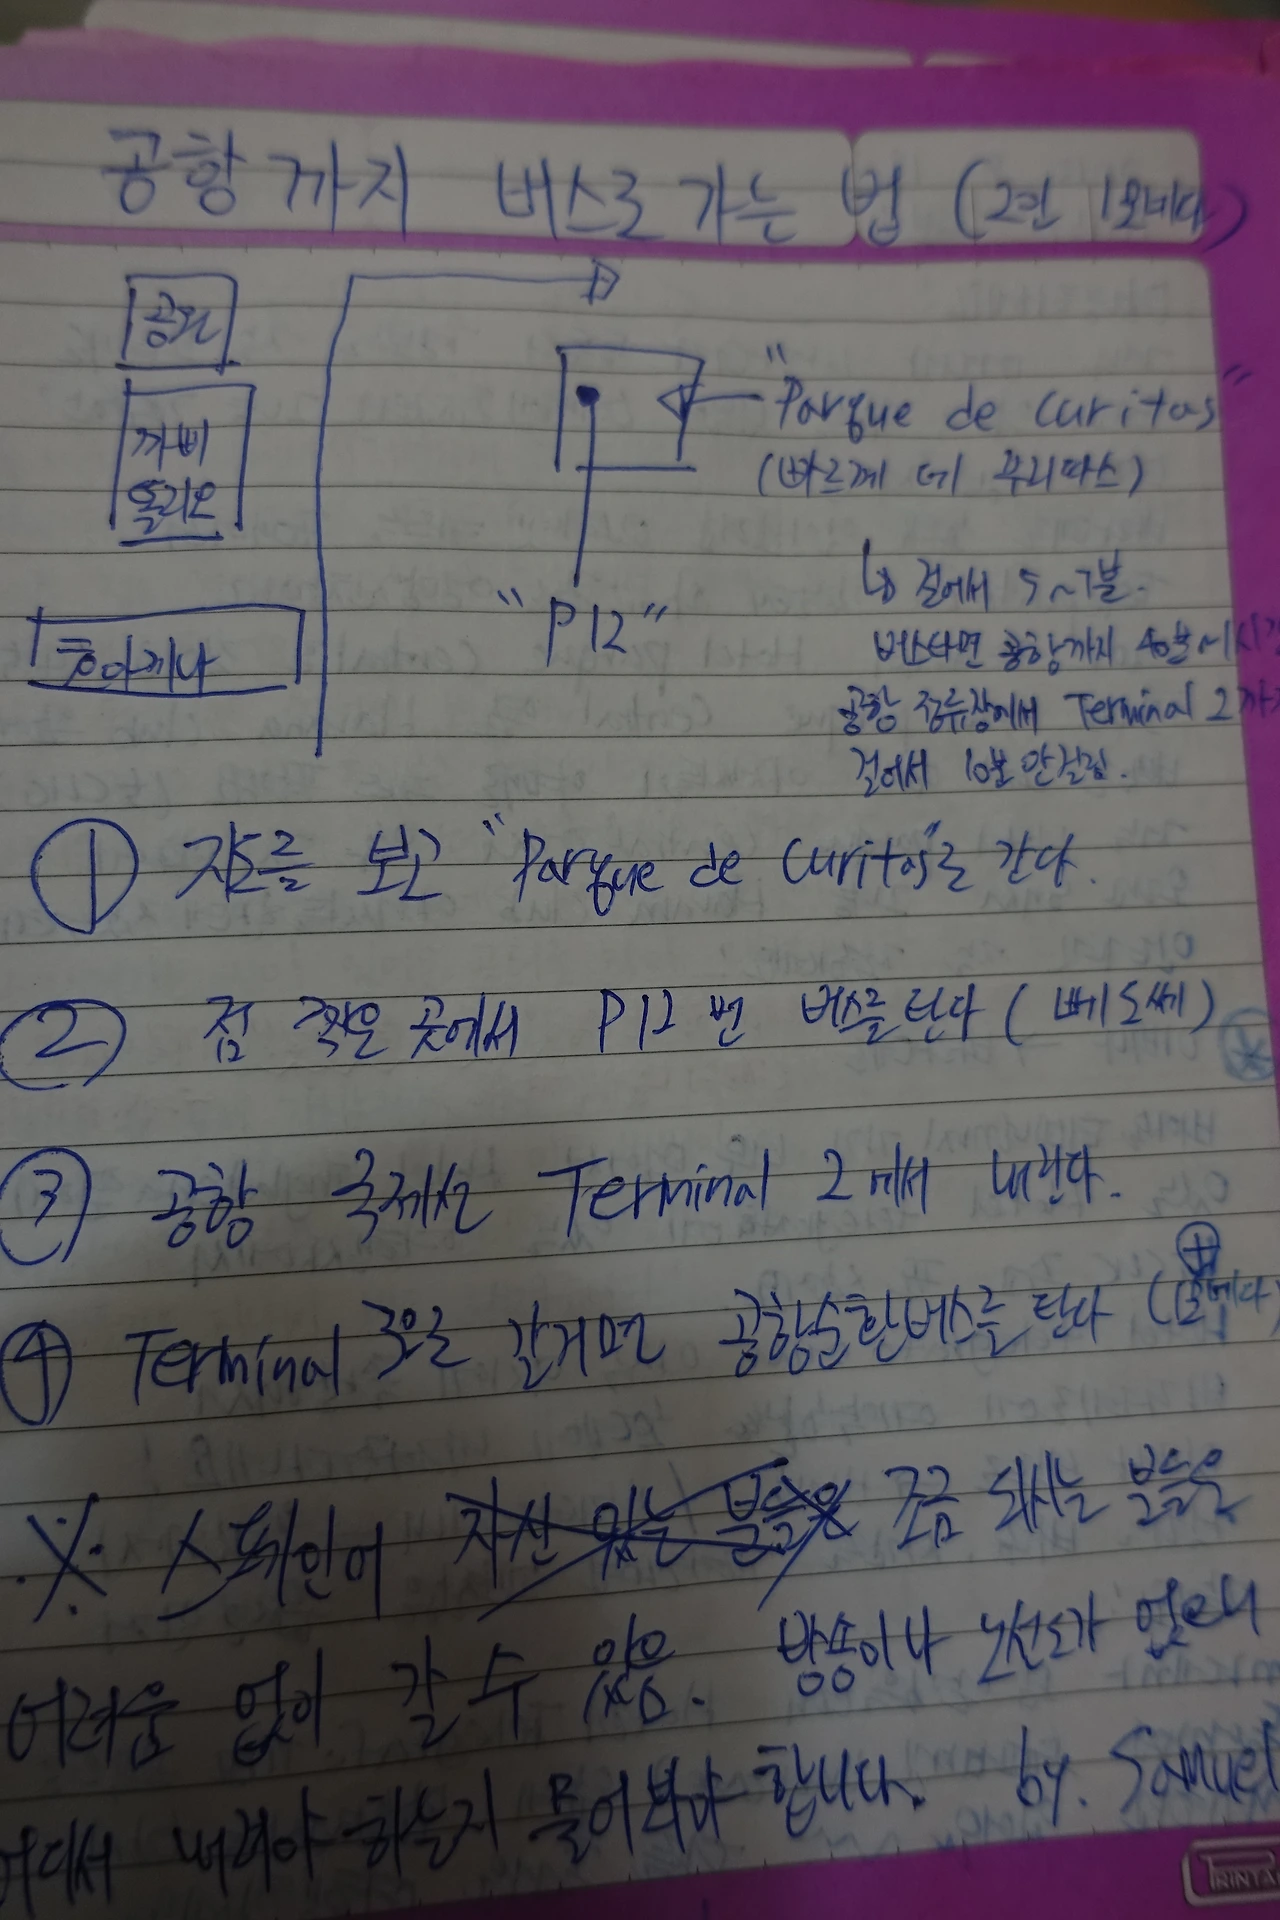 공항까지 버스로 가는 법 (2인 1모네다)
공원
까삐
똘리오
"Parque de curitas"
(빠르께 데 꾸리따스)
호아끼나
"P12"
↳ 걸어서 5~7분.
버스타면 공항까지 40분~1시간
공항 정류장에서 Terminal 2까지
걸어서 10분 안걸림.
① 지도를 보고 "Parque de curitas"로 간다.
② 점 찍은 곳에서 P12번 버스를 탄다 (뻬도쎄)
③ 공항 국제선 Terminal 2에서 내린다.
④ Terminal 3으로 갈거면 공항순환버스를 탄다 (1모네다)
※ 스페인어 자신 있는 분들은 조금 되시는 분들은
어려움 없이 갈 수 있음. 방송이나 노선도가 없으니
어디서 내려야 하는지 물어봐야 합니다. by. Samuel